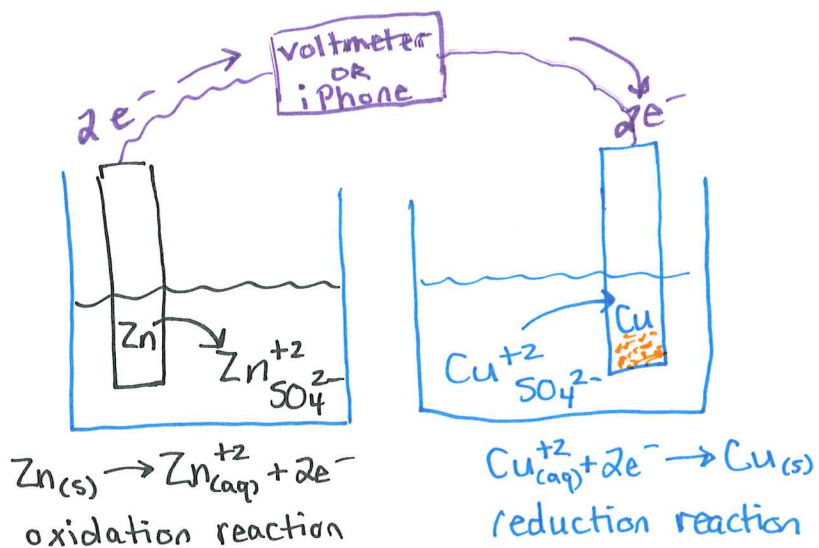 voltmeter
OR
iPhone
2e⁻
2e⁻
Zn
Zn⁺²
SO₄²⁻
Cu
Cu⁺²
SO₄²⁻
Zn(s) → Zn⁺²(aq) + 2e⁻
oxidation reaction
Cu⁺²(aq) + 2e⁻ → Cu(s)
reduction reaction